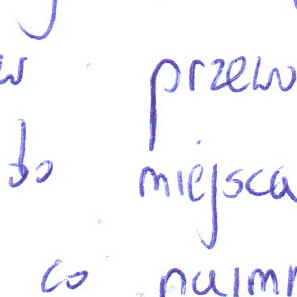 w przewo
do miejsca
co najmn